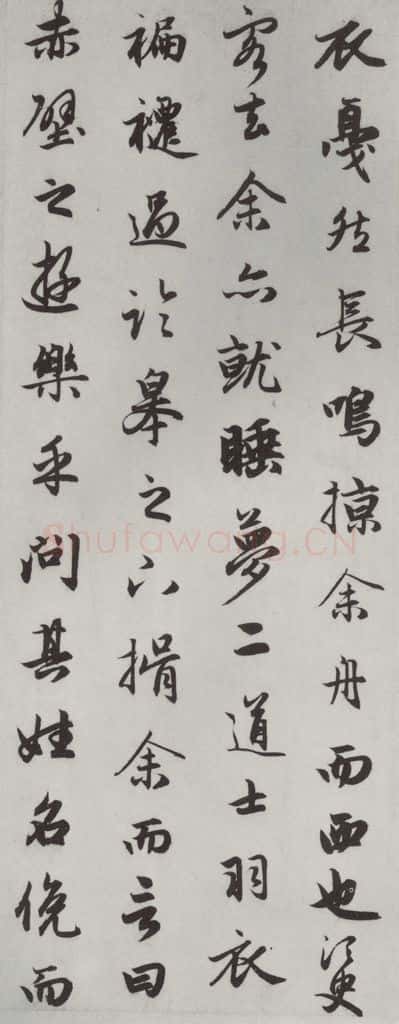 衣戛然長鳴掠余舟而西也須臾
客去余亦就睡夢二道士羽衣
褊襳過臨皋之下揖余而言曰
赤壁之遊樂乎問其姓名俛而
Shufawang.CN